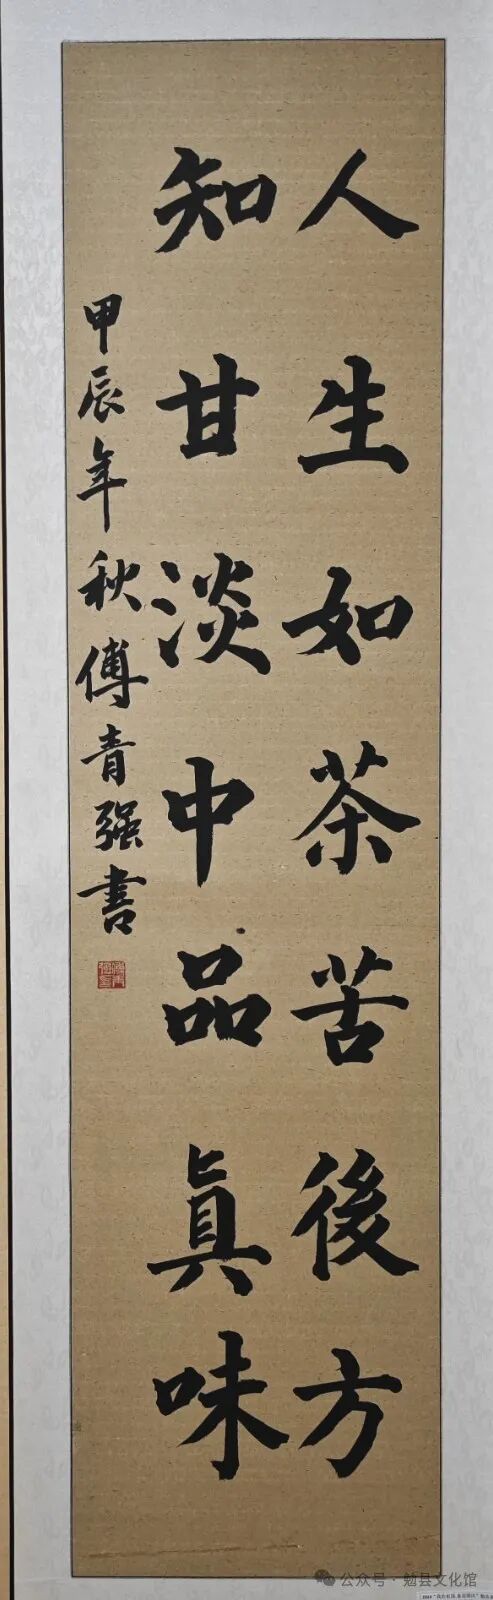 人生如茶苦後方
知甘淡中品真味
甲辰年秋傅青强書
公众号·勉县文化馆